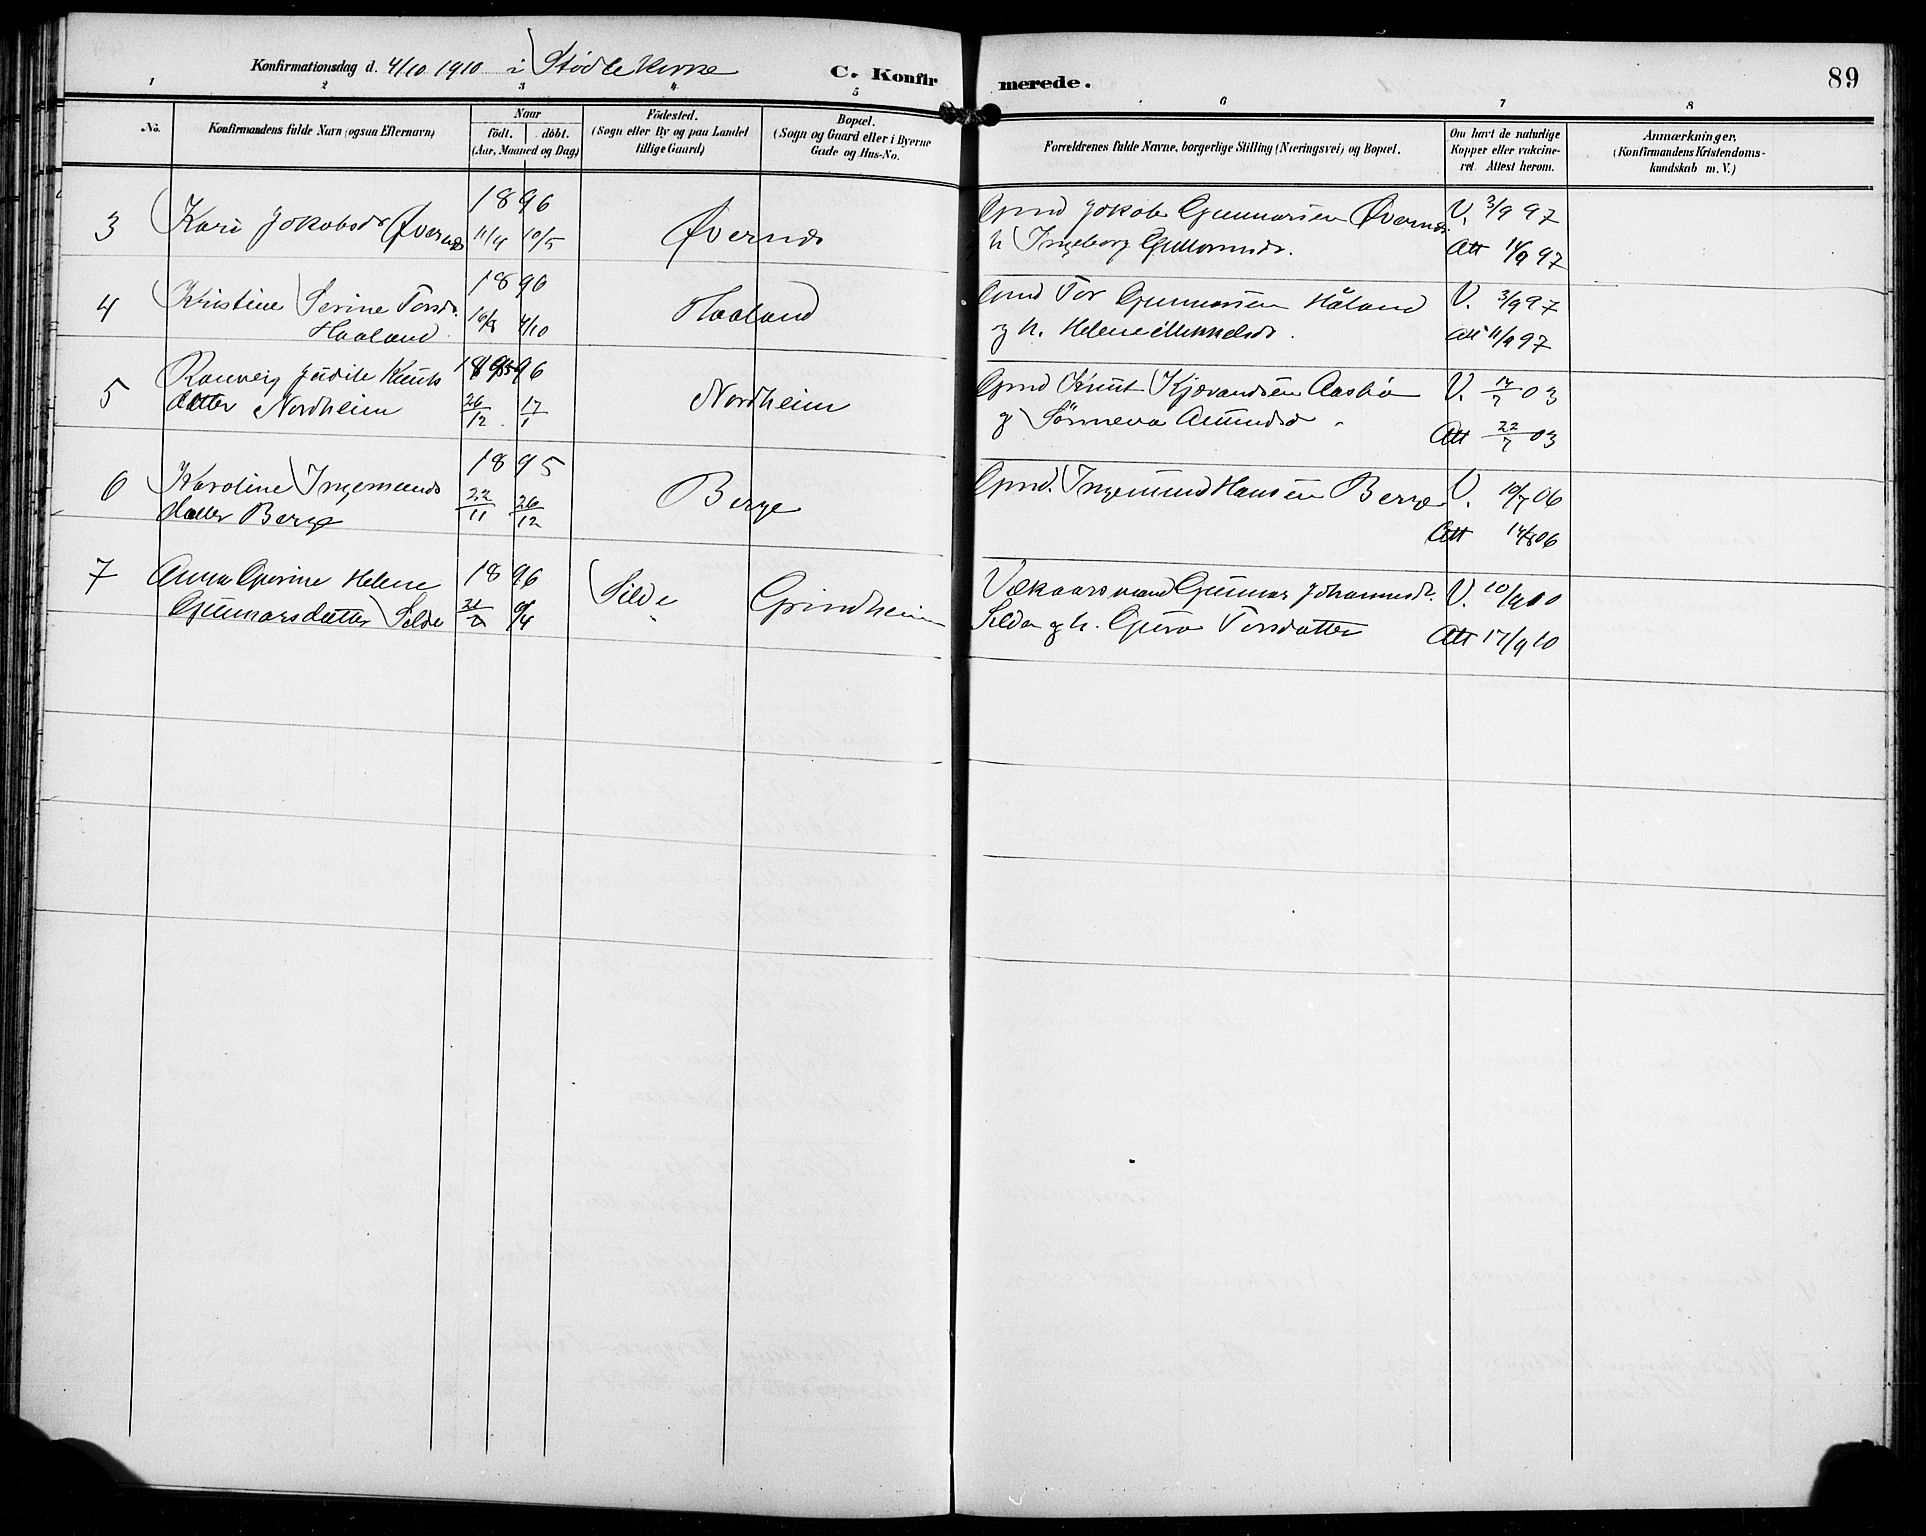 Konfirmationsdag d. 4/10 1910 i Stødle Kirke
C. Konfirmerede.
89
1 2 3 4 5 6 7 8
No.
Konfirmandens fulde Navn (ogsaa Efternavn)
Naar
født. døbt.
(Aar, Maaned og Dag)
Fødested.
(Sogn eller By og paa Landet
tillige Gaard)
Bopæl.
(Sogn og Gaard eller i Byerne
Gade og Hus-No.
Forældrenes fulde Navne, borgerlige Stilling (Næringsvei) og Bopæl.
Om havt de naturlige
Kopper eller vakcine-
ret. Attest herom.
Anmærkninger.
(Konfirmandens Kristendoms-
kundskab m. V.)
3 Kari Jokobsd. Øvernes 1896 11/4 10/5 Øvernes
Grmd Jokob Gunnarsen Øvernes
h Ingeborg Guttormsd.
V. 3/9 97
Att 11/9 97
4 Kristine Serine Torsd.
Haaland
1896
16/8 4/10
Haaland
Grmd Tor Gunnarsen Håland
og h. Helene Mikkelsd.
V. 3/9 97
Att 11/9 97
5 Ranveig Judite Knuts
datter Nordheim
1895 96
26/12 17/1
Nordheim
Grmd Knut Kjærandsen Aasbø
og Sønneva Amundsd
V. 17/7 03
Att 22/7 03
6 Karoline Ingemunds
datter Berge
1895
22/11 26/12
Berge
Grmd. Ingemund Hansen Berge
V. 10/7 06
Att 14/8 06
7 Anna Gurine Helene
Gunnarsdatter Silde
1896
6/4
Silde
Grindheim
Vækaarsmand Gunnar Johannesd.
Silde og h. Guro Torsdatter
V. 10/9 00
Att 17/9 10